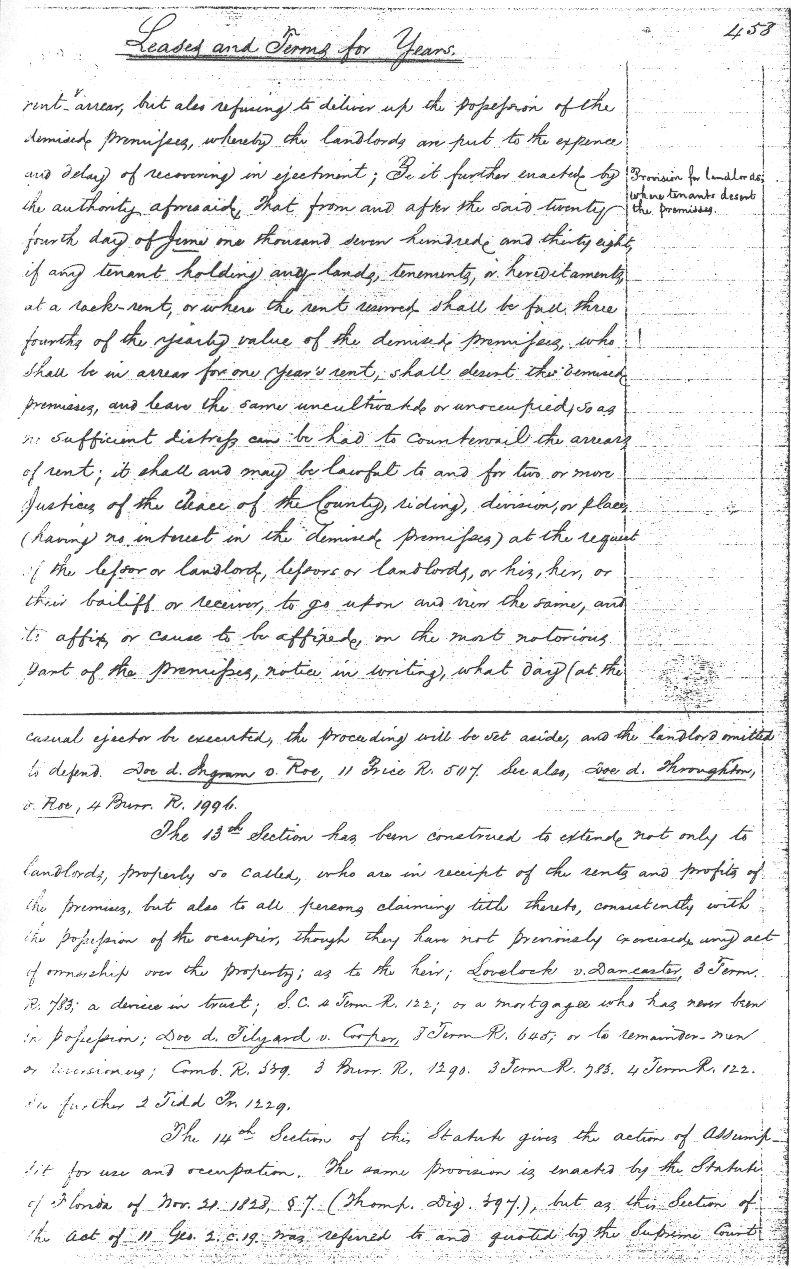 458
Leases and Terms for Years.
rent arrear, but also refusing to deliver up the possession of the
demised premisses, whereby the landlords are put to the expence
and delay of recovering in ejectment; Be it further enacted by
the authority aforesaid, That from and after the said twenty
fourth day of June one thousand seven hundred and thirty eight,
if any tenant holding any lands, tenements, or hereditaments,
at a rack-rent, or where the rent reserved shall be full three
fourths of the yearly value of the demised premisses, who
shall be in arrear for one year's rent, shall desert the demised
premisses, and leave the same uncultivated or unoccupied, so as
no sufficient distress can be had to countervail the arrears
of rent; it shall and may be lawful to and for two or more
Justices of the Peace of the County, riding, division, or place
(having no interest in the demised premisses) at the request
of the lessor or landlord, lessors or landlords, or his, her, or
their bailiff or receiver, to go upon and view the same, and
to affix or cause to be affixed, on the most notorious
part of the premisses, notice in writing, what day (at the
Provision for landlords,
where tenants desert
the premisses.
casual ejector be executed, the proceeding will be set aside, and the landlord omitted
to defend. Doe d. Ingram v. Roe, 11 Price R. 507. See also, Doe d. Throughton,
v. Roe, 4 Burr. R. 1996.
The 13th Section has been construed to extend not only to
landlords, properly so called, who are in receipt of the rents and profits of
the premises, but also to all persons claiming title thereto, consistently with
the possession of the occupier, though they have not previously exercised any act
of ownership over the property; as to the heir; Lovelock v. Dancaster, 3 Term.
R. 783; a devisee in trust; S.C. 4 Term R. 122; or a mortgagee who has never been
in possession; Doe d. Tilyard v. Cooper, 8 Term R. 645; or to remainder-men
or reversioners; Comb. R. 339. 3 Burr. R. 1290. 3 Term R. 783. 4 Term R. 122.
further 2 Tidd Pr. 1229.
The 14th Section of this Statute gives the action of Assump-
sit for use and occupation. The same provision is enacted by the Statute
of Florida of Nov. 21. 1828, § 7. (Thomp. Dig. 397.), but as this Section of
the act of 11 Geo. 2. c. 19. was referred to and quoted by the Supreme Court